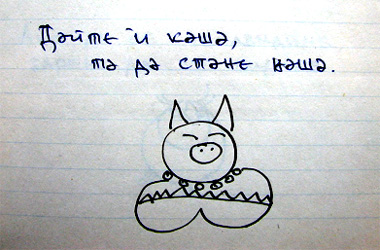 Дайте ѝ каша,
та да стане наша.